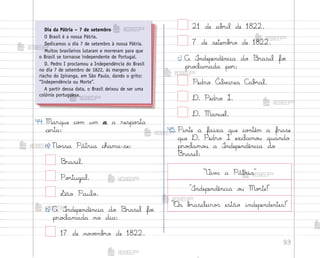 Dia da Pátria – 7 de setembro
O Brasil é a nossa Pátria.
Dedicamos o dia 7 de setembro à nossa Pátria.
Muitos brasileiros lutaram e morreram para que
o Brasil se tornasse independente de Portugal.
D. Pedro I proclamou a Independência do Brasil
no dia 7 de setembro de 1822, às margens do
riacho do Ipiranga, em São Paulo, dando o grito:
"Independência ou Morte".
A partir dessa data, o Brasil deixou de ser uma
colônia portuguesa.
44. Marque com um x a resposta
certa:
a) Nossa Pátria chama-se:
Brasil.
Portugal.
São Paulo.
b) A Independência do Brasil foi
proclamada no dia:
17 de novembro de 1822.
21 de abril de 1822.
7 de setembro de 1822.
c) A Independência do Brasil foi
proclamada por:
Pedro Álvares Cabral.
D. Pedro I.
D. Manuel.
45. Pinte a faixa que contém a frase
que D. Pedro I exclamou quando
proclamou a Independência do
Brasil:
"Viva a Pátria"
"Independência ou Morte!"
"Os brasileiros estão independentes!"
93